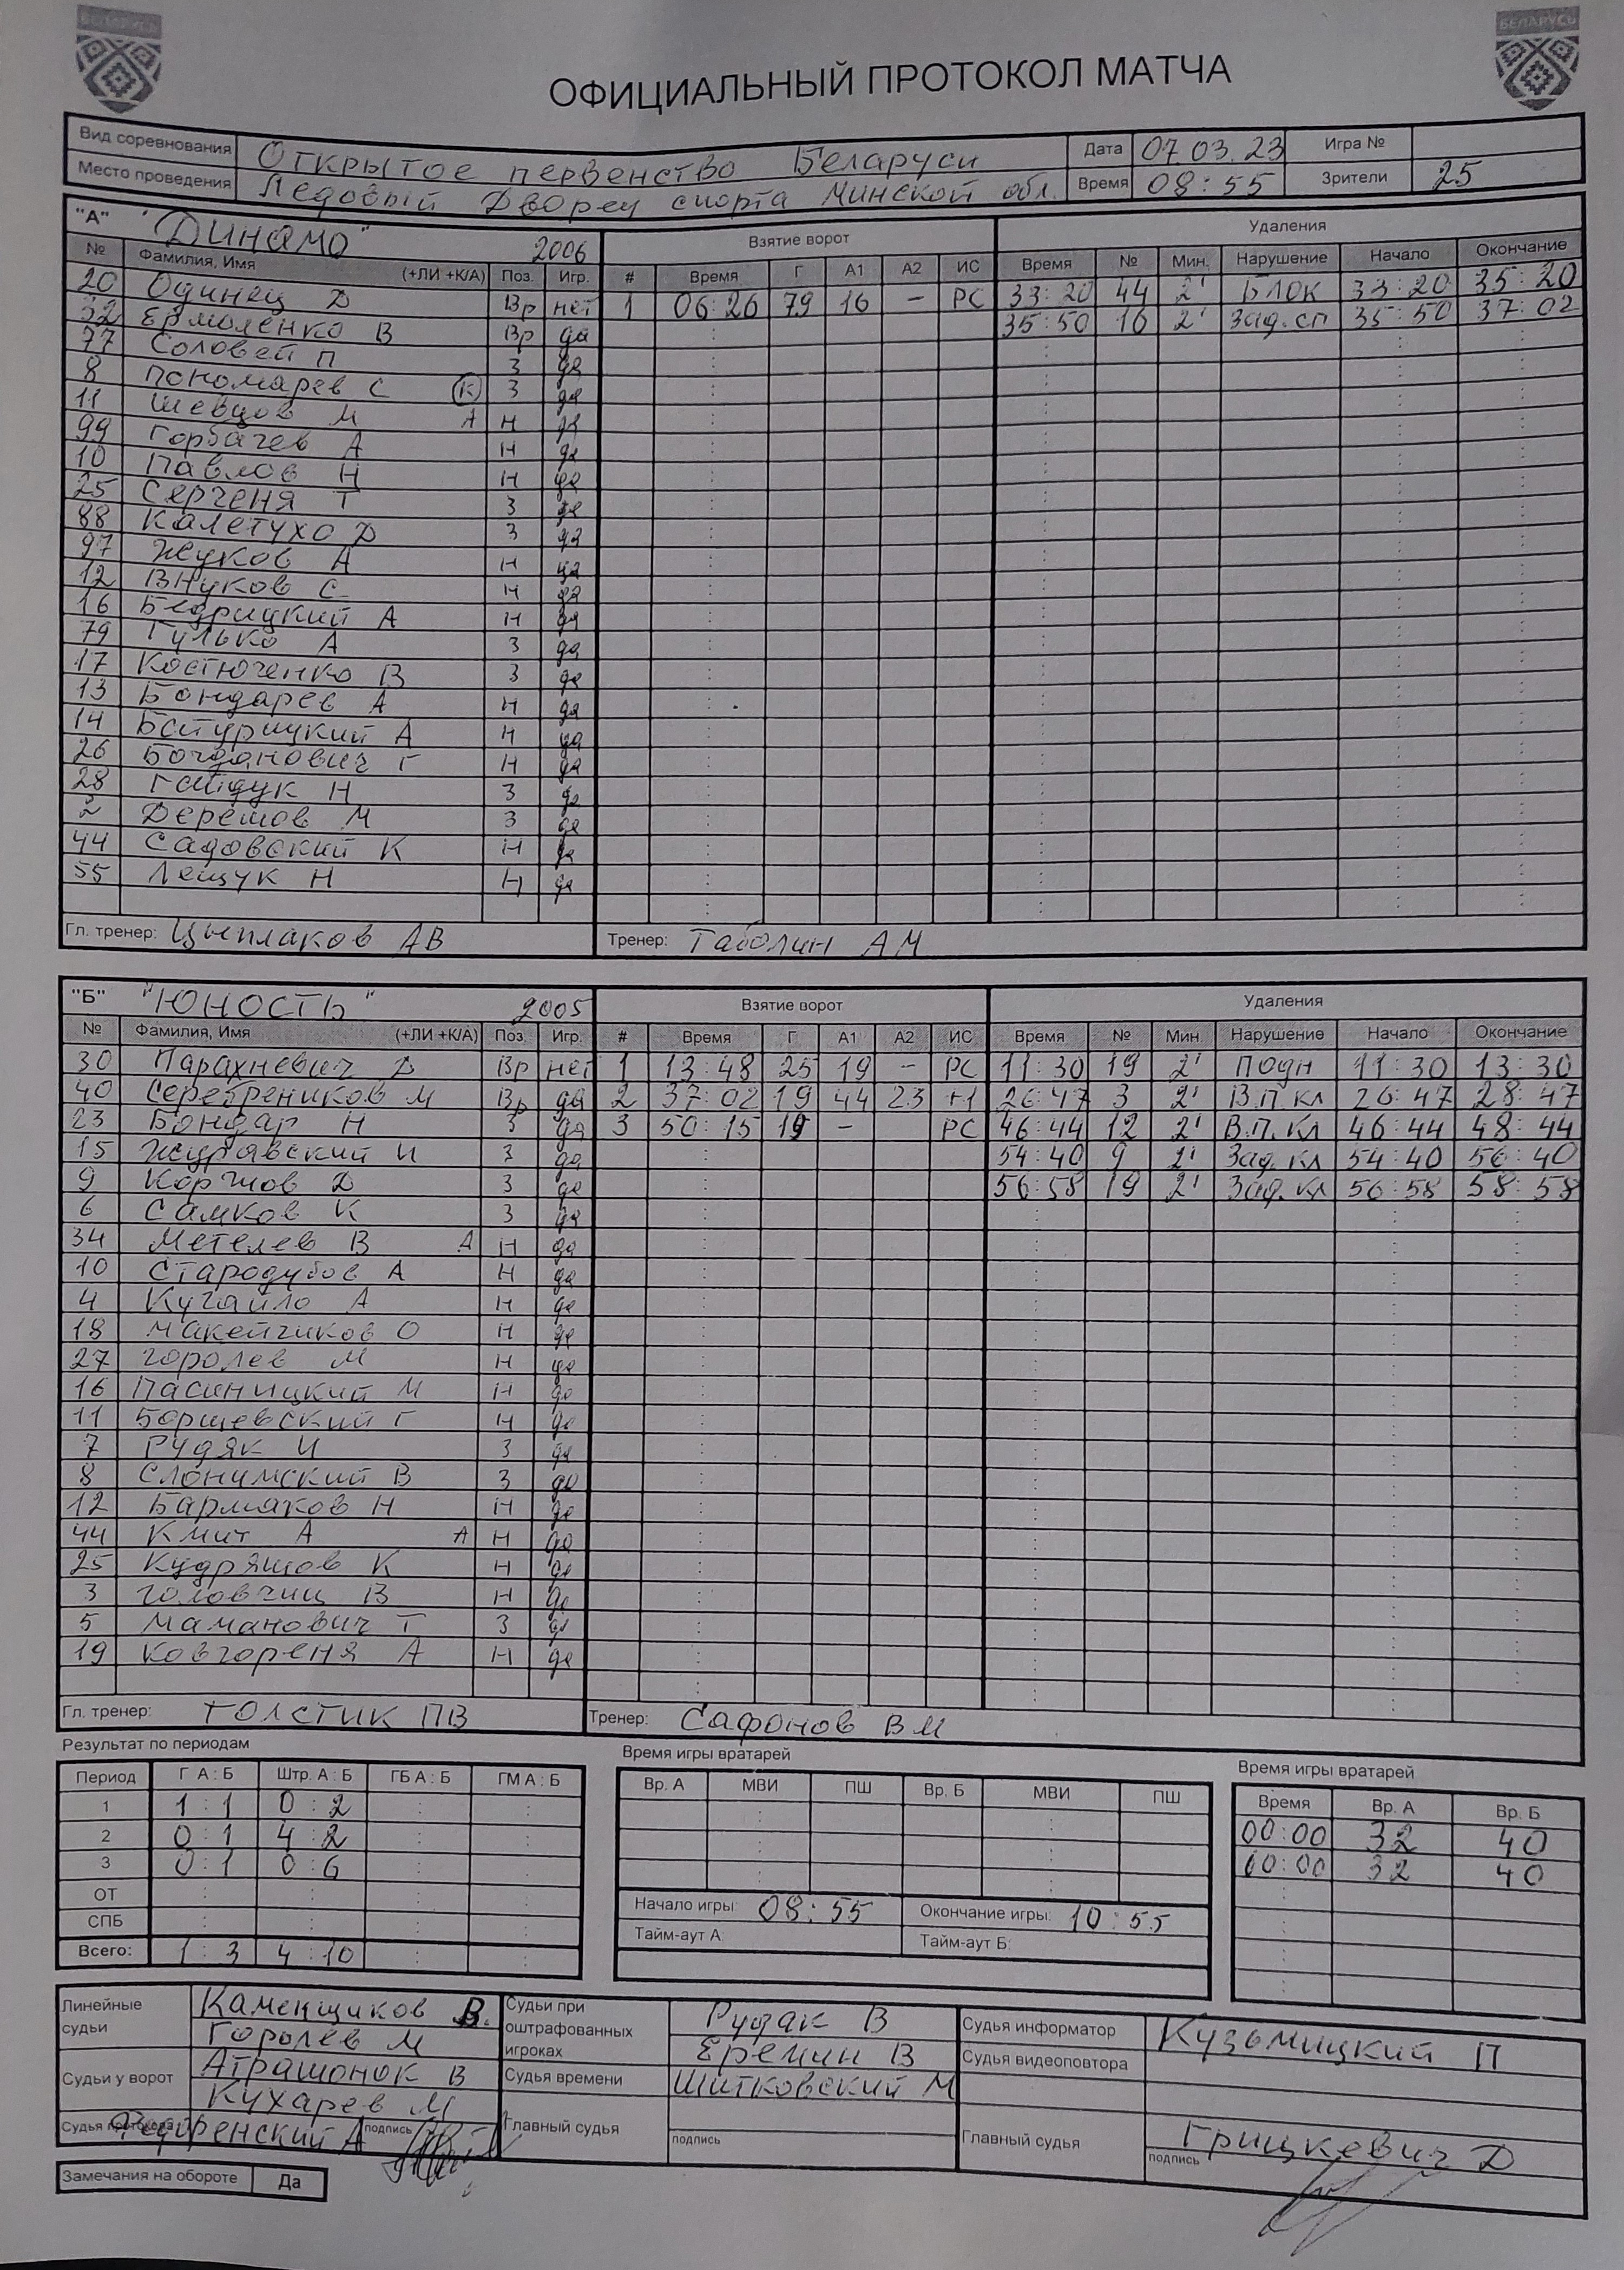 БЕЛАРУСЬ
БЕЛАРУСЬ
ОФИЦИАЛЬНЫЙ ПРОТОКОЛ МАТЧА
Вид соревнования Открытое первенство Беларуси Дата 07.03.23 Игра №
Место проведения Ледовый Дворец спорта Минской обл. Время 08:55 Зрители 25
"А" "Динамо" 2006 Взятие ворот Удаления
№ Фамилия, Имя (+ЛИ +К/А) Поз. Игр. # Время Г А1 А2 ИС Время № Мин. Нарушение Начало Окончание
20 Одинец Д Вр нет 1 06:26 79 16 – РС 33:20 44 2' Блок 33:20 35:20
32 Ермоленко В Вр да 35:50 16 2' Зад.сп 35:50 37:02
77 Соловей П З да
8 Пономарев С К З да
11 Шевцов М А Н да
99 Горбачев А Н да
10 Павлов Н Н да
25 Сергеня Т З да
88 Калетухо Д З да
97 Жуков А Н да
12 Внуков С Н да
16 Бедрицкий А Н да
79 Гулько А З да
17 Костюченко В З да
13 Бондарев А Н да
14 Батурицкий А Н да
26 Богданович Г Н да
28 Гайдук Н З да
2 Дерешов М З да
44 Садовский К Н да
55 Лещук Н Н да
Гл. тренер: Цыплаков АВ Тренер: Таболин АМ
"Б" "ЮНОСТЬ" 2005 Взятие ворот Удаления
№ Фамилия, Имя (+ЛИ +К/А) Поз. Игр. # Время Г А1 А2 ИС Время № Мин. Нарушение Начало Окончание
30 Парахневич Д Вр нет 1 13:48 25 19 – РС 11:30 19 2' подн 11:30 13:30
40 Серебреников М Вр да 2 37:02 19 44 23 +1 26:47 3 2' В.П.кл 26:47 28:47
23 Бондар Н З да 3 50:15 19 – РС 46:44 12 2' В.П.кл 46:44 48:44
15 Журавский И З да 54:40 9 2' Зад.кл 54:40 56:40
9 Коршов Д З да 56:58 19 2' Зад.кл 56:58 58:58
6 Самков К З да
34 Метелев В А Н да
10 Стародубов А Н да
4 Кугайло А Н да
18 Макейчиков О Н да
27 Горолев М Н да
16 Пасиницкий М Н да
11 Борщевский Г Н да
7 Рудяк И З да
8 Слонимский В З да
12 Бармаков Н Н да
44 Кмит А А Н да
25 Кудряшов К Н да
3 Головчиц В Н да
5 Маманович Т З да
19 Ковгореня А Н да
Гл. тренер: ТОЛСТИК ПВ Тренер: Сафонов ВМ
Результат по периодам Время игры вратарей Время игры вратарей
Период Г А : Б Штр. А : Б ГБ А : Б ГМ А : Б Вр. А МВИ ПШ Вр. Б МВИ ПШ Время Вр. А Вр. Б
1 1:1 0:2 00:00 32 40
2 0:1 4:2 60:00 32 40
3 0:1 0:6
ОТ
СПБ
Всего: 1:3 4:10
Начало игры: 08:55 Окончание игры: 10:55
Тайм-аут А: Тайм-аут Б:
Линейные судьи Каменщиков В.
Горолев М
Судьи у ворот Атрашонок В
Кухарев М
Судья протокола подпись
Судьи при оштрафованных игроках Рудак В
Еремин В
Судья времени Шитковский М
Главный судья
подпись
Судья информатор Кузьмицкий П
Судья видеоповтора
Главный судья Грицкевич Д
подпись
Замечания на обороте Да